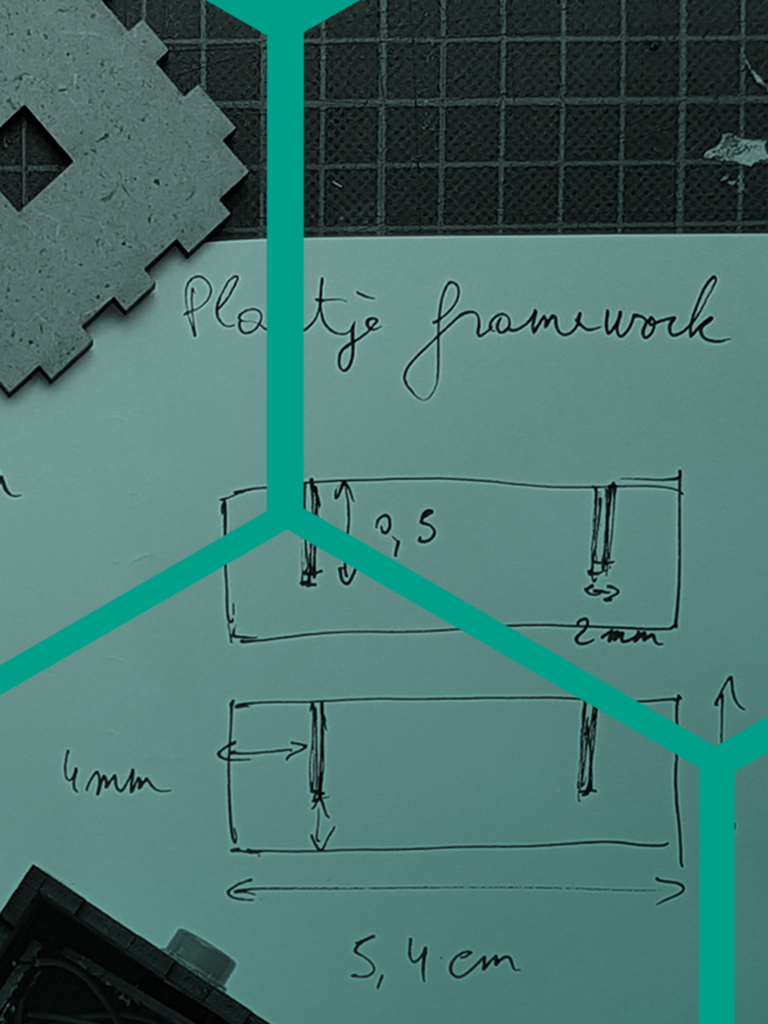 Plaatje framework
0,5
2mm
4mm
5,4 cm